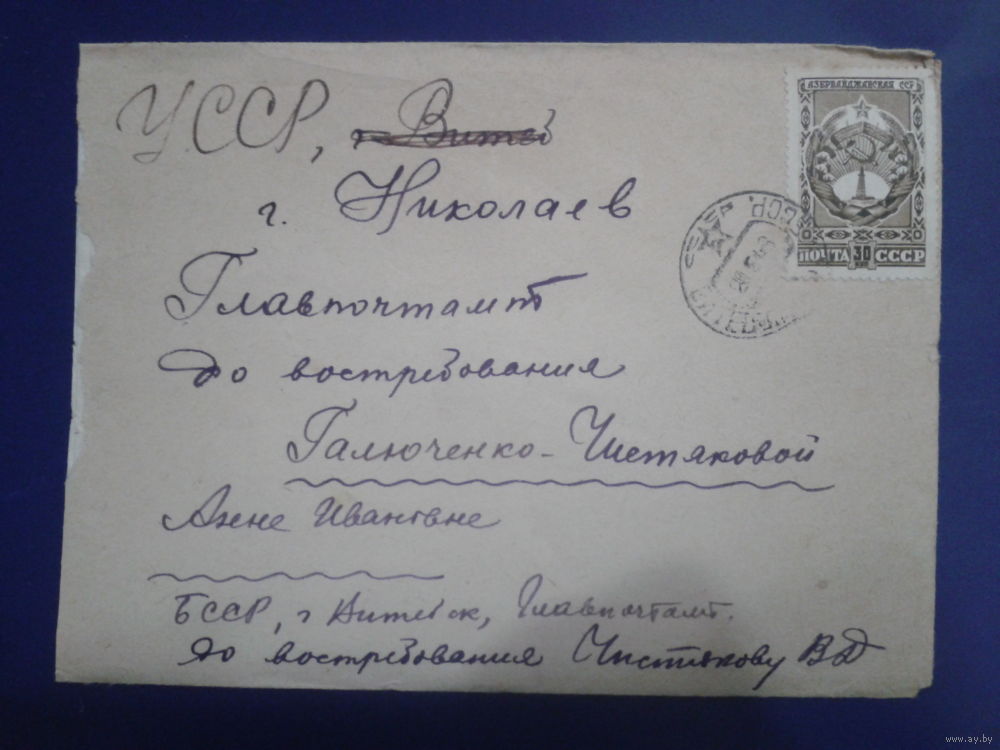 УССР, г. Витеб
г. Николаев
Главпочтамт
До востребования
Галюченко-Чистяковой
Анне Ивановне
БССР, г Витебск, Главпочтамт.
До востребования Чистякову ВД
АЗЕРБАЙДЖАНСКАЯ ССР
ПОЧТА 30 СССР
www.ay.by